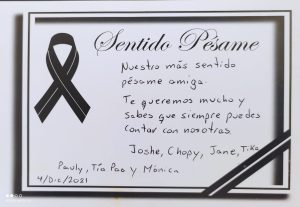 Sentido Pésame
Nuestro más sentido
pésame amiga.
Te queremos mucho y
sabes que siempre puedes
contar con nosotras.
Joshe, Chopy, Jane, Tika
Pauly, Tía Pao y Mónica
4/Dic/2021